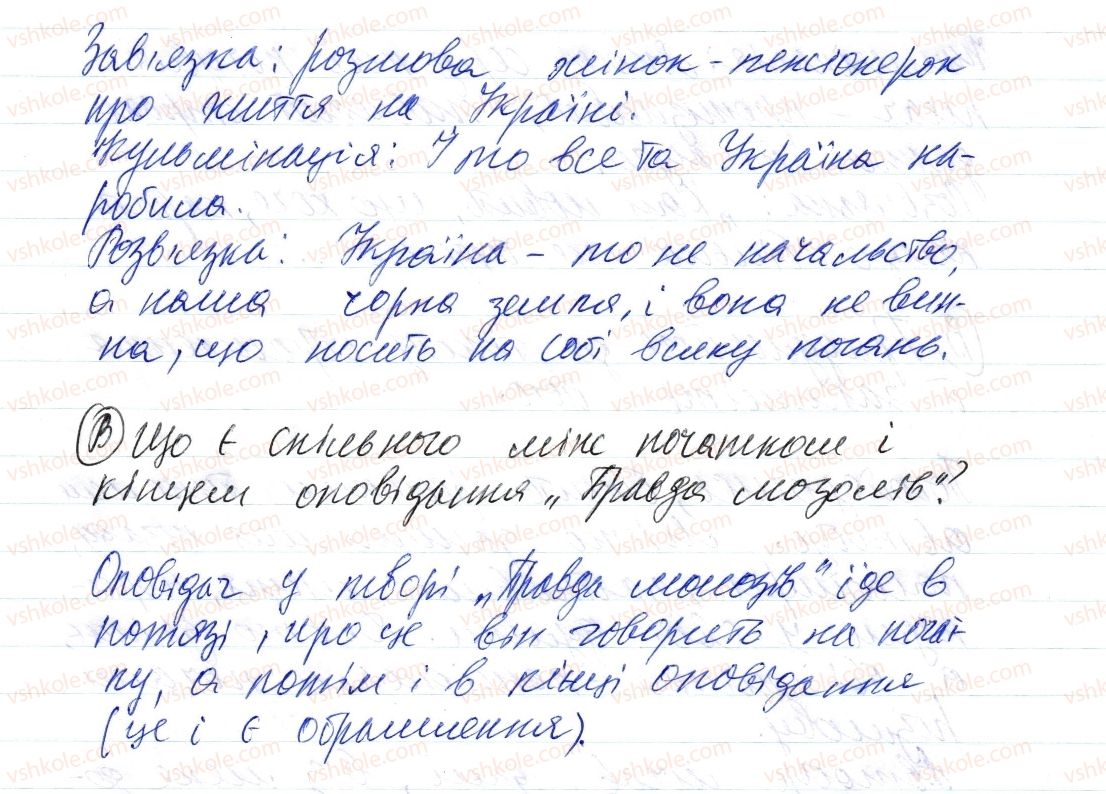 Зав'язка: розмова жінок-пенсіонерок
про життя на Україні.
Кульмінація: І то все та Україна на-
робила.
Розв'язка: Україна - то не начальство,
а наша чорна земля, і вона не вин-
на, що носить на собі всяку погань.
В Що є спільного між початком і
кінцем оповідання „Правда мозолів"?
Оповідач у творі „Правда молозів" їде в
потязі, про це він говорить на почат-
ку, а потім і в кінці оповідання
(це і є обрамлення).